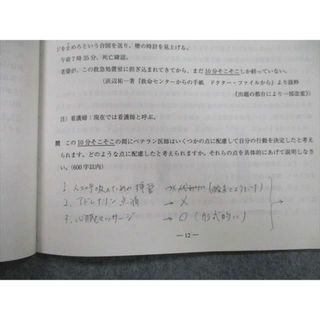 ジを止めろという合図を送り、壁の時計を見上げる。
午前7時35分、死亡確認。
老婆が、この救急処置室に担ぎ込まれてきてから、まだ10分そこそこしか経っていない。
(浜辺祐一著『救命センターからの手紙 ドクター・ファイルから』より抜粋
《出題の都合により一部改変》)
注) 看護婦：現在では看護師と呼ぶ。
問 この10分そこそこの間にベテラン医師はいくつかの点に配慮して自分の行動を決定したと考えら
れます。どのような点に配慮したと考えられますか。それらの点を具体的にあげて説明しなさ
い。(600字以内)
1. 人工呼吸のための挿管
2. アドレナリン点滴 → ×
3. 心臓マッサージ → ○ (形式的に)
— 12 —